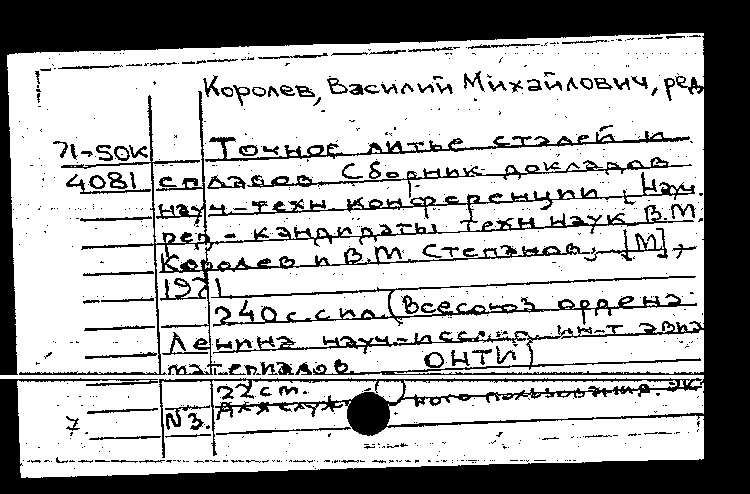 Королев, Василий Михайлович, ред
71-50К Точное литье сталей и
4081 сплавов. Сборник докладов
науч-техн конференции. [Науч.
ред - кандидаты техн наук В.М.
Королев и В.М. Степанов], [М],
1971
240 с. с ил. (Всесоюз ордена
Ленина науч-исслед. ин-т авиа
материалов. ОНТИ)
22 ст.
Для служ ного пользования. Эк
N3.
7.